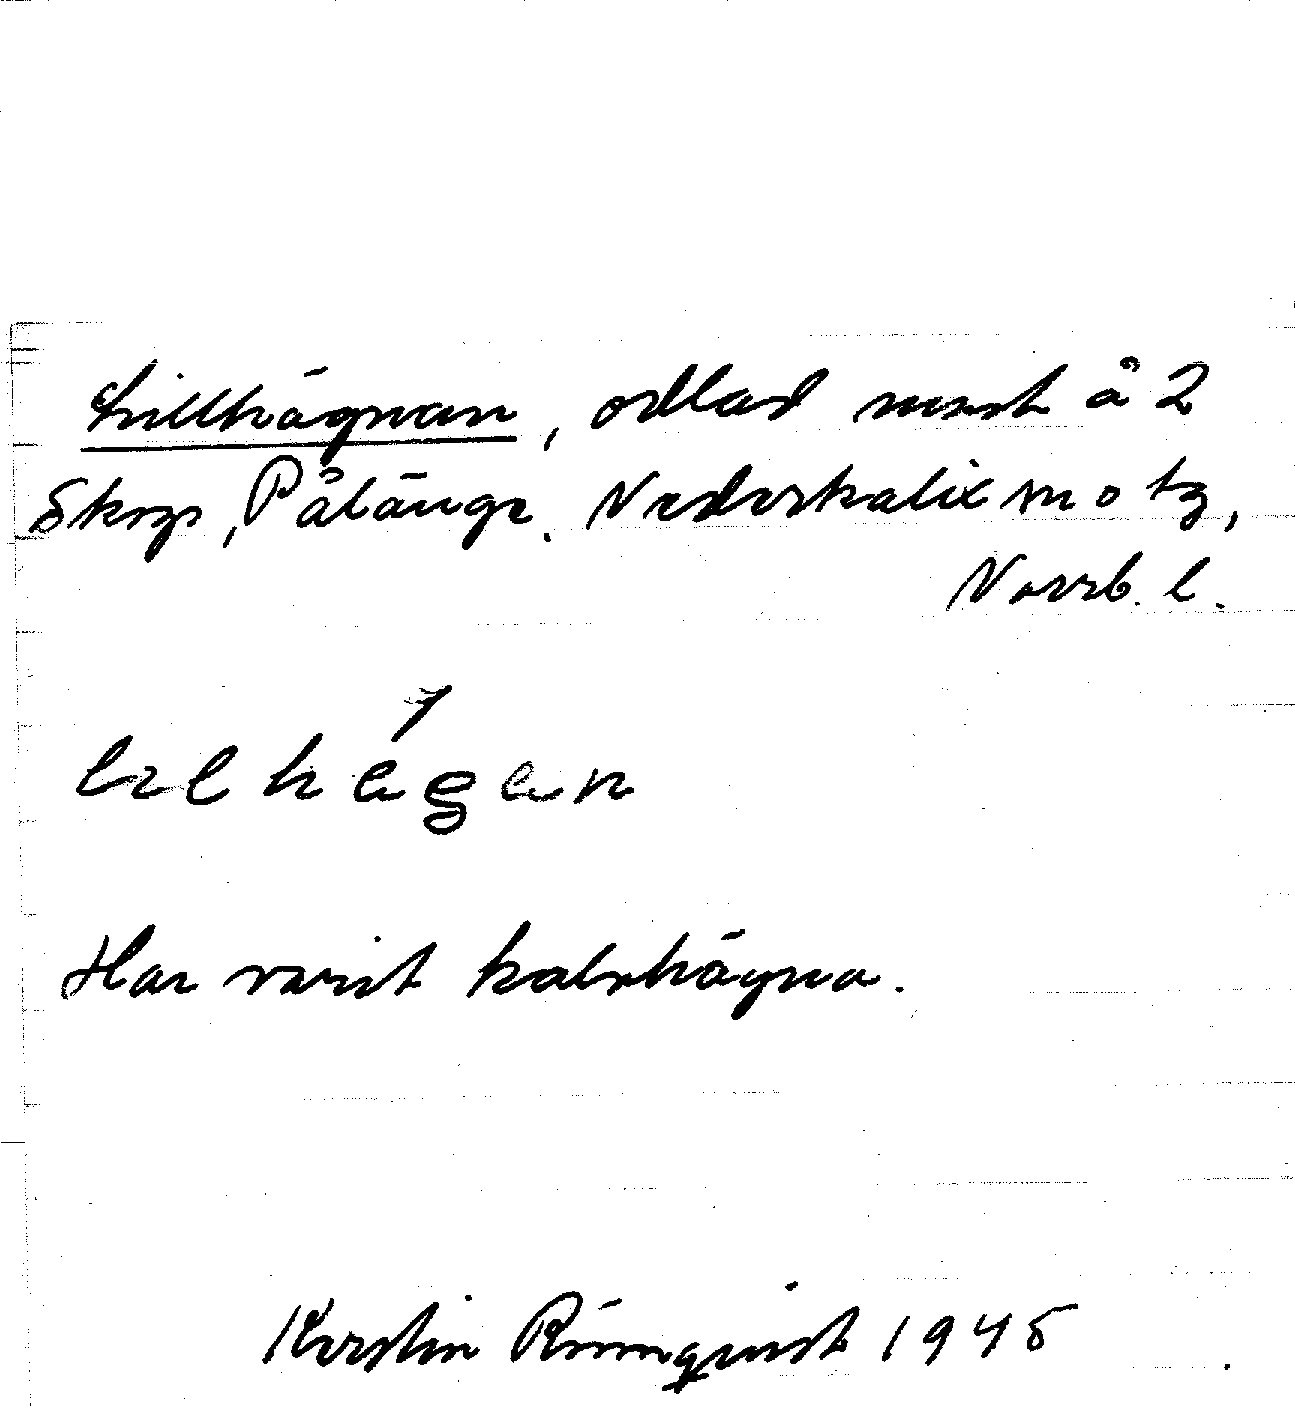 Lillhägnan, odlad mest å 2
Skogs, Pålänge. Nederkalix m o tg,
Norrb. l.
Har varit kalvhägna.
Kerstin Rönnquist 1945